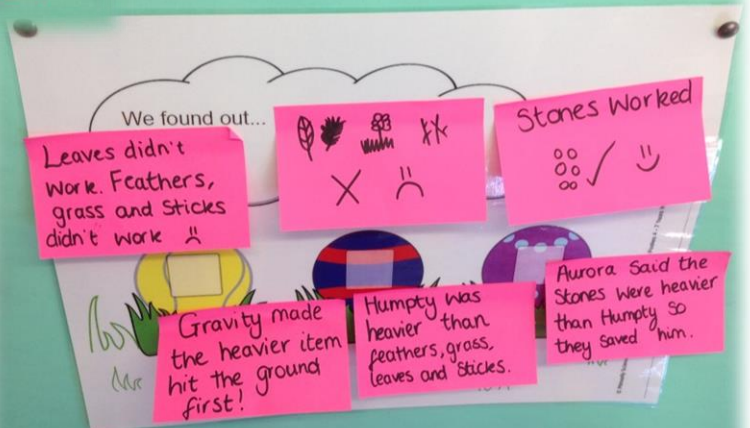 We found out...
Leaves didn't
work. Feathers,
grass and Sticks
didn't work
Stones Worked
Gravity made
the heavier item
hit the ground
first!
Humpty was
heavier than
feathers, grass,
leaves and Sticks.
Aurora Said the
Stones were heavier
than Humpty so
they saved him.